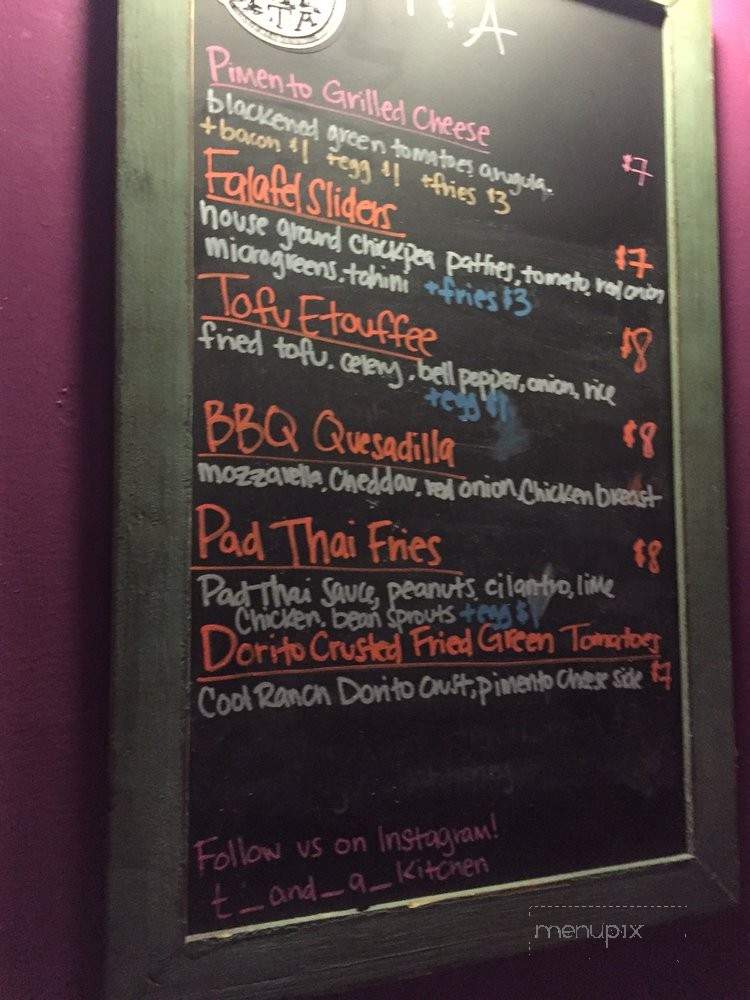 TA
T A
Pimento Grilled Cheese
blackened green tomatoes, arugula. $7
+bacon $1 +egg $1 +fries $3
Falafel Sliders
house ground chickpea patties, tomato, red onion $7
microgreens, tahini +fries $3
Tofu Etouffee $8
fried tofu, celery, bell pepper, onion, rice
+egg $1
BBQ Quesadilla $8
mozzarella, Cheddar, red onion, Chicken breast
Pad Thai Fries $8
Pad Thai Sauce, peanuts, cilantro, lime
Chicken, bean sprouts +egg $1
Dorito Crusted Fried Green Tomatoes
Cool Ranch Dorito Crust, pimento cheese side $7
Follow us on Instagram!
t_and_a_Kitchen
menupix